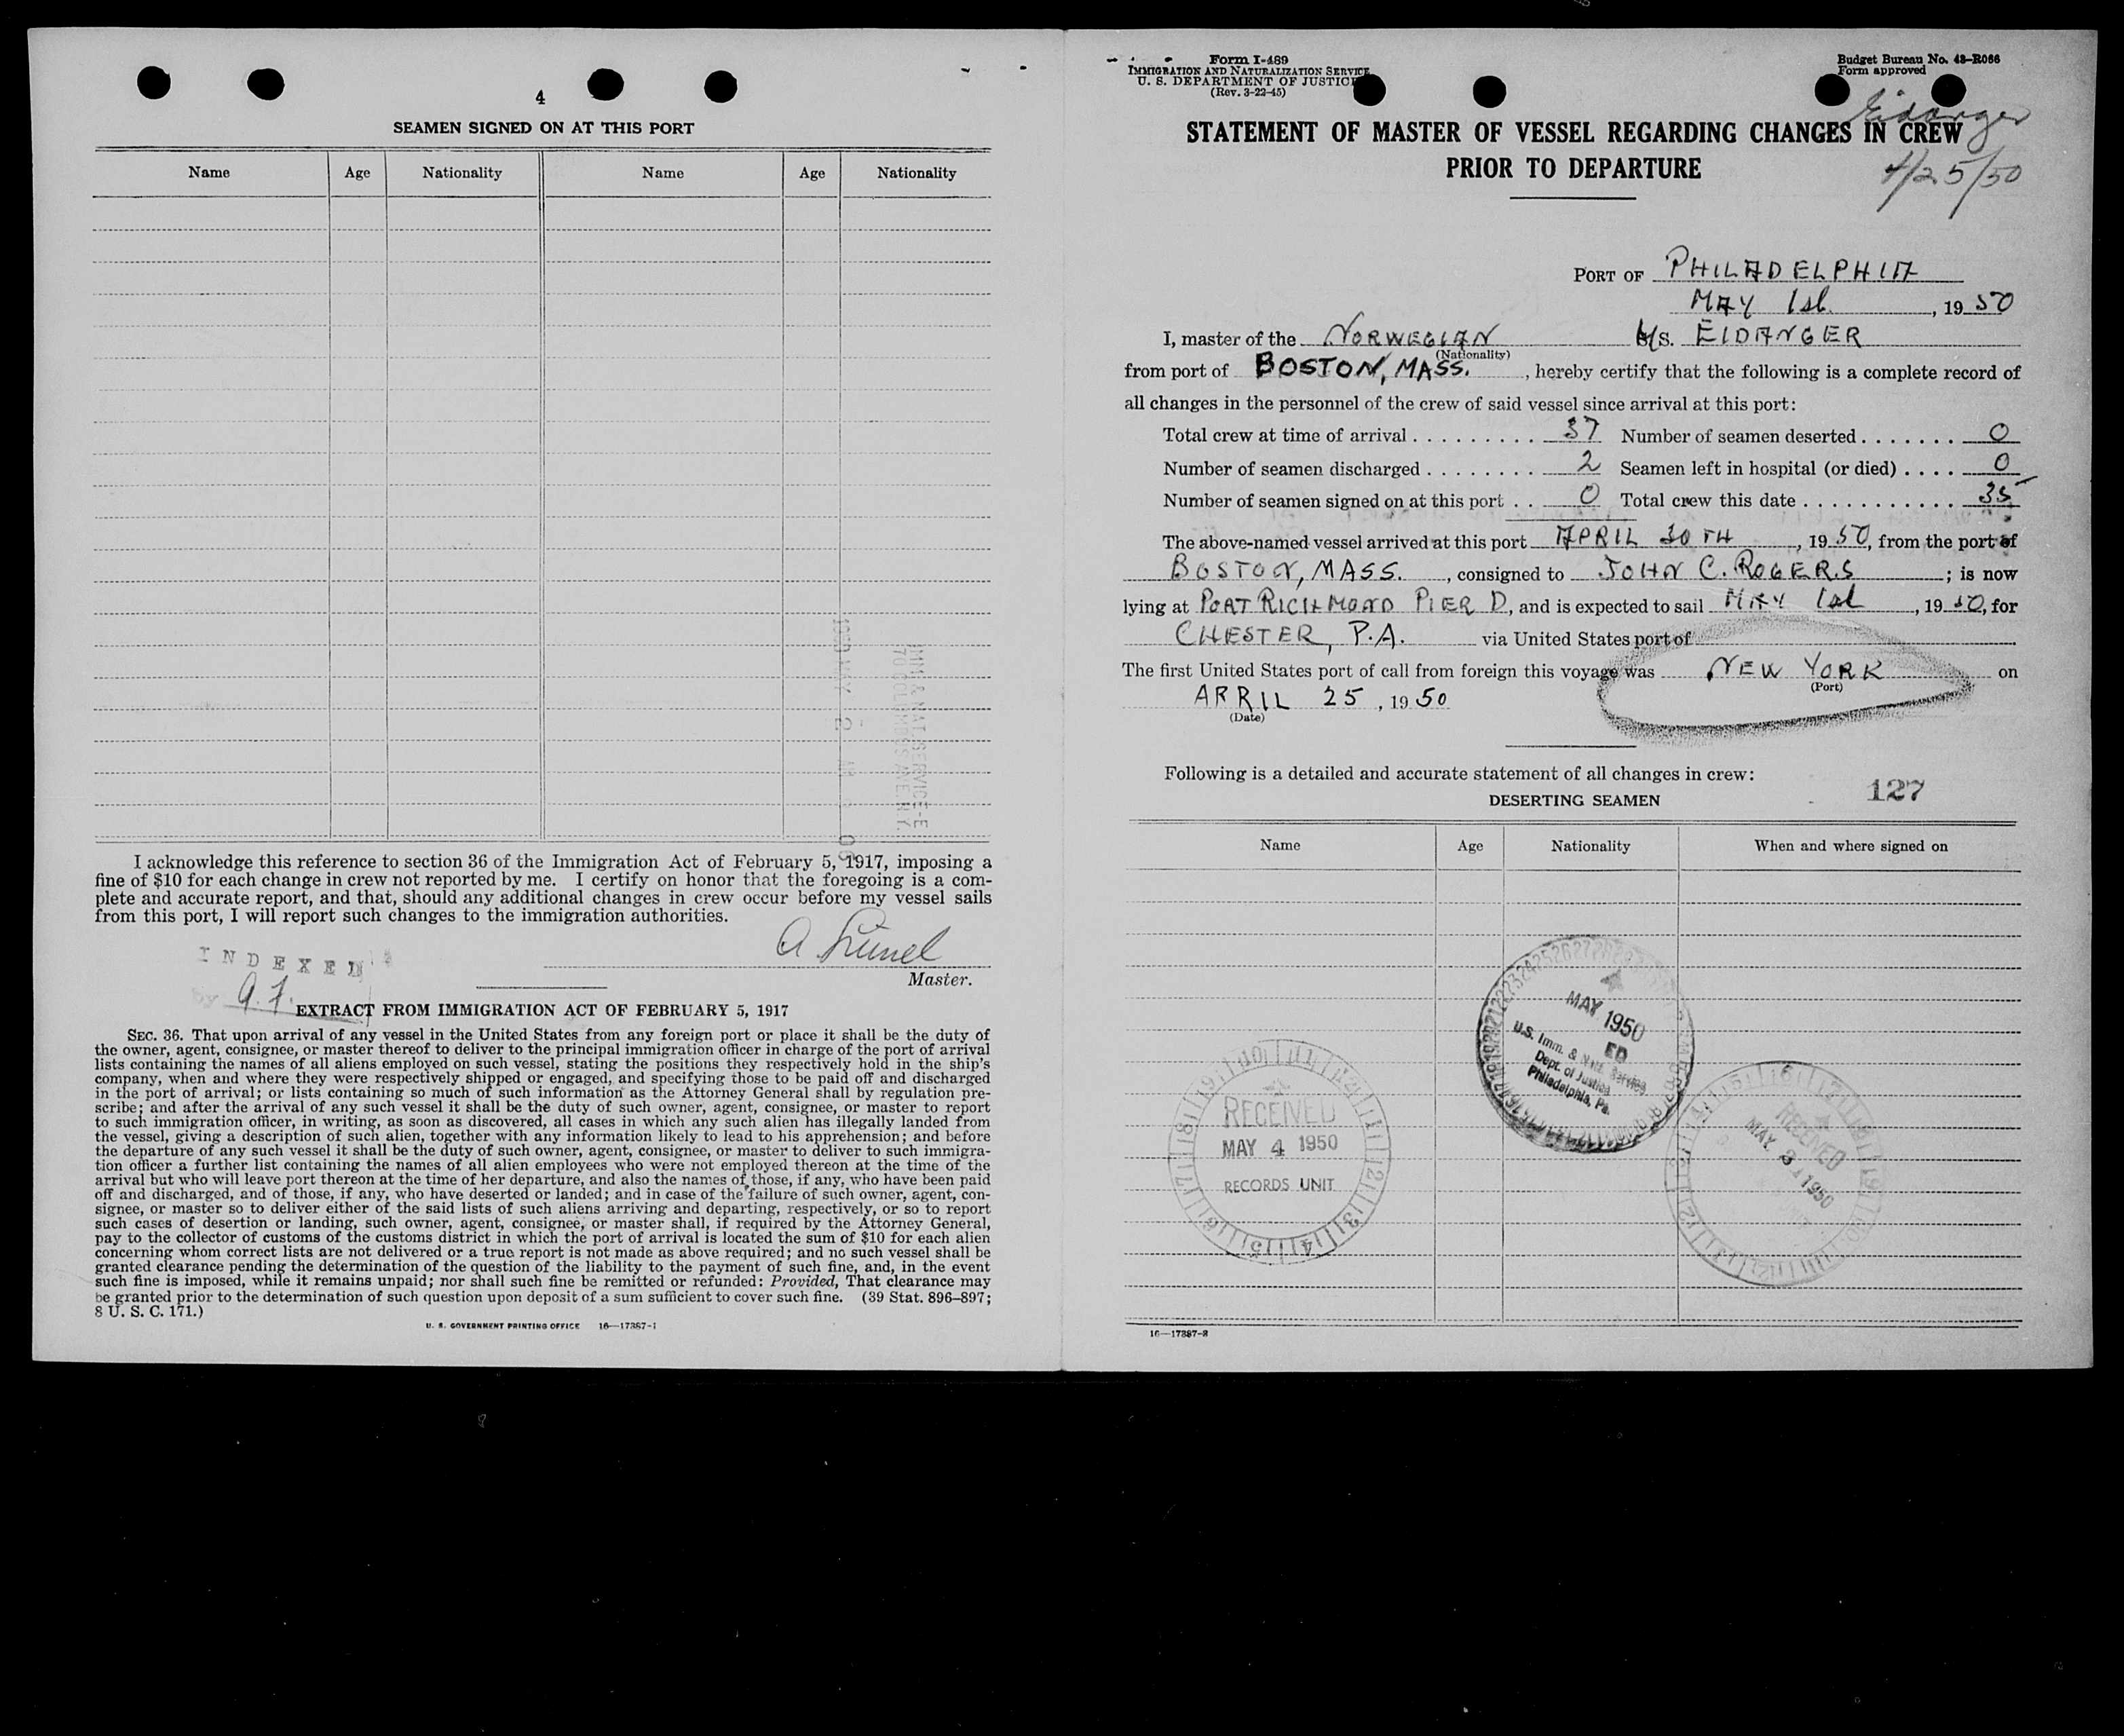 4
SEAMEN SIGNED ON AT THIS PORT
Name Age Nationality Name Age Nationality
1950 MAY 2
IMM & NAT SERVICE-E
70 COLUMBUS AVE. N.Y.
I acknowledge this reference to section 36 of the Immigration Act of February 5, 1917, imposing a
fine of $10 for each change in crew not reported by me. I certify on honor that the foregoing is a com-
plete and accurate report, and that, should any additional changes in crew occur before my vessel sails
from this port, I will report such changes to the immigration authorities.
A.
INDEXED
Master.
by
EXTRACT FROM IMMIGRATION ACT OF FEBRUARY 5, 1917
SEC. 36. That upon arrival of any vessel in the United States from any foreign port or place it shall be the duty of
the owner, agent, consignee, or master thereof to deliver to the principal immigration officer in charge of the port of arrival
lists containing the names of all aliens employed on such vessel, stating the positions they respectively hold in the ship's
company, when and where they were respectively shipped or engaged, and specifying those to be paid off and discharged
in the port of arrival; or lists containing so much of such information as the Attorney General shall by regulation pre-
scribe; and after the arrival of any such vessel it shall be the duty of such owner, agent, consignee, or master to report
to such immigration officer, in writing, as soon as discovered, all cases in which any such alien has illegally landed from
the vessel, giving a description of such alien, together with any information likely to lead to his apprehension; and before
the departure of any such vessel it shall be the duty of such owner, agent, consignee, or master to deliver to such immigra-
tion officer a further list containing the names of all alien employees who were not employed thereon at the time of the
arrival but who will leave port thereon at the time of her departure, and also the names of those, if any, who have been paid
off and discharged, and of those, if any, who have deserted or landed; and in case of the failure of such owner, agent, con-
signee, or master so to deliver either of the said lists of such aliens arriving and departing, respectively, or so to report
such cases of desertion or landing, such owner, agent, consignee, or master shall, if required by the Attorney General,
pay to the collector of customs of the customs district in which the port of arrival is located the sum of $10 for each alien
concerning whom correct lists are not delivered or a true report is not made as above required; and no such vessel shall be
granted clearance pending the determination of the question of the liability to the payment of such fine, and, in the event
such fine is imposed, while it remains unpaid; nor shall such fine be remitted or refunded: Provided, That clearance may
be granted prior to the determination of such question upon deposit of a sum sufficient to cover such fine. (39 Stat. 896–897;
8 U. S. C. 171.)
U. S. GOVERNMENT PRINTING OFFICE 16—17387-1
Form I-489
IMMIGRATION AND NATURALIZATION SERVICE
U. S. DEPARTMENT OF JUSTICE
(Rev. 3-22-45)
Budget Bureau No. 43-R066
Form approved
Eidanger
STATEMENT OF MASTER OF VESSEL REGARDING CHANGES IN CREW
PRIOR TO DEPARTURE
4/25/50
PORT OF PHILADELPHIA
MAY 1st., 1950
I, master of the NORWEGIAN M/S. EIDANGER
(Nationality)
from port of BOSTON, MASS., hereby certify that the following is a complete record of
all changes in the personnel of the crew of said vessel since arrival at this port:
Total crew at time of arrival . . . . . . . . . 37 Number of seamen deserted . . . . . . . 0
Number of seamen discharged . . . . . . . . 2 Seamen left in hospital (or died) . . . . 0
Number of seamen signed on at this port . . 0 Total crew this date . . . . . . . . . . . 35
The above-named vessel arrived at this port APRIL 30TH, 1950, from the port of
BOSTON, MASS., consigned to JOHN C. ROGERS; is now
lying at PORT RICHMOND PIER D, and is expected to sail MAY 1st, 1950, for
CHESTER, P.A. via United States port of
The first United States port of call from foreign this voyage was NEW YORK on
(Port)
ARRIL 25, 1950
(Date)
Following is a detailed and accurate statement of all changes in crew:
DESERTING SEAMEN 127
Name Age Nationality When and where signed on
MAY 1950
ED
U.S. Imm. & Natz. Service
Dept. of Justice
Philadelphia, Pa.
RECEIVED
MAY 4 1950
RECORDS UNIT
RECEIVED
MAY 3 1950
16—17387-2